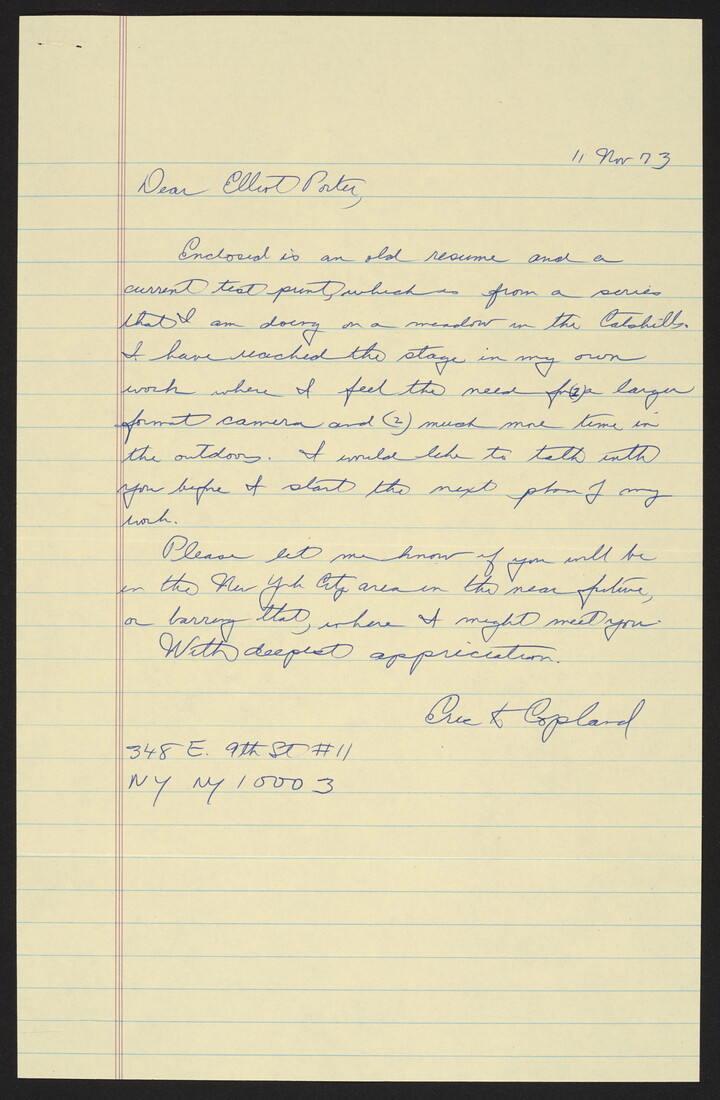 11 Nov 73
Dear Elliot Porter,
Enclosed is an old resume and a
current test print, which is from a series
that I am doing on a meadow in the Catskills.
I have reached the stage in my own
work where I feel the need for (1) a larger
format camera and (2) much more time in
the outdoors. I would like to talk with
you before I start the next phase of my
work.
Please let me know if you will be
in the New York City area in the near future,
or barring that, where I might meet you.
With deepest appriciation.
Eric K Copland
348 E. 9th St #11
NY NY 10003